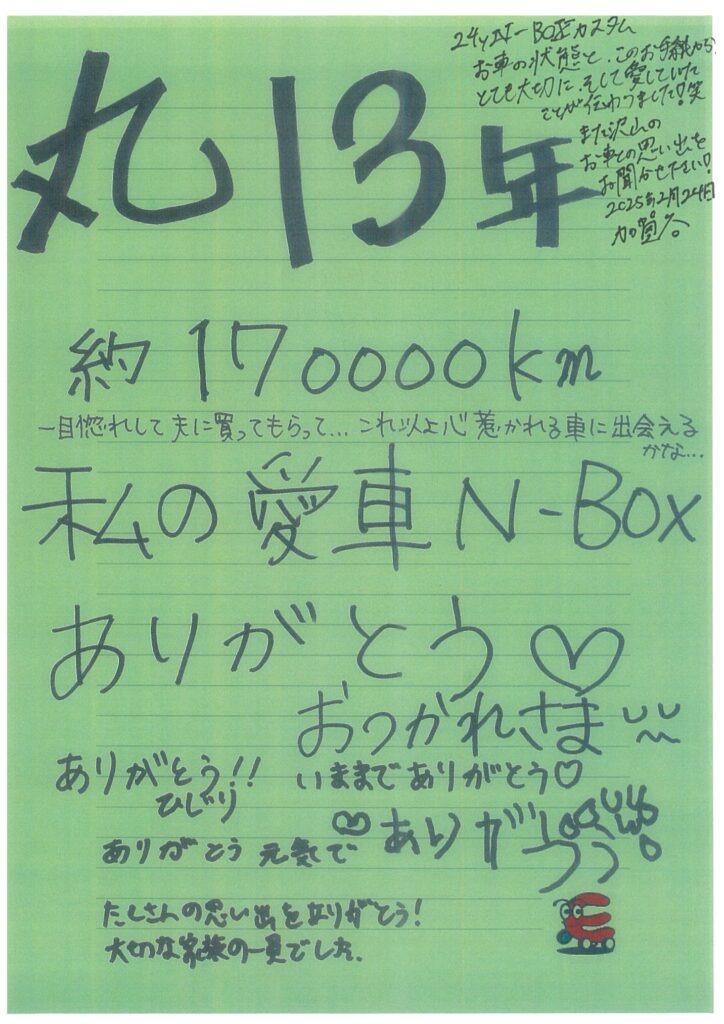 24y N-BOXカスタム
お車の状態と、このお手紙から
とても大切に、そして愛していた
ことが伝わりました!笑
また沢山の
お車との思い出を
お聞かせ下さい!
2025年2月24日
加賀谷
丸13年
約170000km
一目惚れして夫に買ってもらって... これ以上心惹かれる車に出会える
かな...
私の愛車N-BOX
ありがとう♡
おつかれさま
ありがとう!!
ひじり
いままでありがとう♡
ありがとう 元気で
♡ありがとう
たくさんの思い出をありがとう!
大切な家族の一員でした。